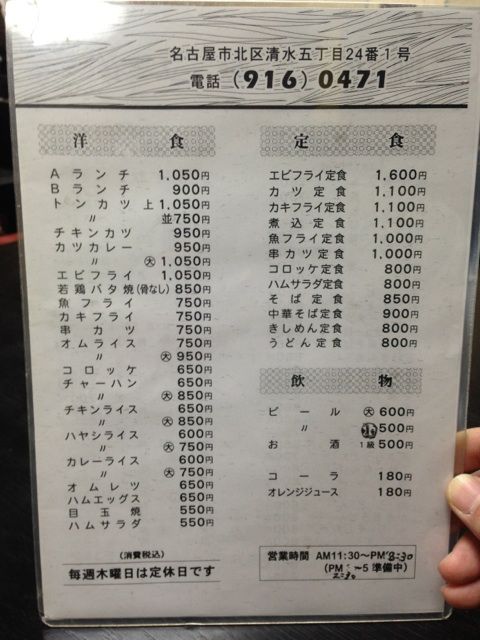 名古屋市北区清水五丁目24番1号
電話 (916) 0471
洋食
Aランチ 1,050円
Bランチ 900円
トンカツ 上 1,050円
〃 並 750円
チキンカツ 950円
カツカレー 950円
〃 大 1,050円
エビフライ 1,050円
若鶏バタ焼(骨なし) 850円
魚フライ 750円
カキフライ 750円
串カツ 750円
オムライス 750円
〃 大 950円
コロッケ 650円
チャーハン 650円
〃 大 850円
チキンライス 650円
〃 大 850円
ハヤシライス 600円
〃 大 750円
カレーライス 600円
〃 大 750円
オムレツ 650円
ハムエッグス 650円
目玉焼 550円
ハムサラダ 550円
(消費税込)
毎週木曜日は定休日です
定食
エビフライ定食 1,600円
カツ定食 1,100円
カキフライ定食 1,100円
煮込定食 1,100円
魚フライ定食 1,000円
串カツ定食 1,000円
コロッケ定食 800円
ハムサラダ定食 800円
そば定食 850円
中華そば定食 900円
きしめん定食 800円
うどん定食 800円
飲物
ビール 大 600円
〃 小 500円
お酒 1級 500円
コーラ 180円
オレンジジュース 180円
営業時間 AM11:30〜PM8:30
(PM 2:30〜5 準備中)